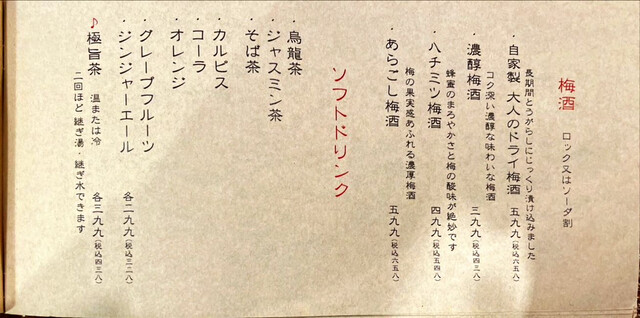 梅酒 ロック又はソーダ割
長期間とうがらしにじっくり漬け込みました
・自家製 大人のドライ梅酒 五九九(税込六五八)
・濃醇梅酒 三九九(税込四三八)
コク深い濃醇な味わいな梅酒
蜂蜜のまろやかさと梅の酸味が絶妙です
・ハチミツ梅酒 四九九(税込五四八)
梅の果実感あふれる濃厚梅酒
・あらごし梅酒 五九九(税込六五八)
ソフトドリンク
・烏龍茶
・ジャスミン茶
・そば茶
・カルピス
・コーラ
・オレンジ
・グレープフルーツ
・ジンジャーエール 各二九九(税込三二八)
♪極旨茶 温または冷 各三九九(税込四三八)
二回ほど継ぎ湯・継ぎ水できます